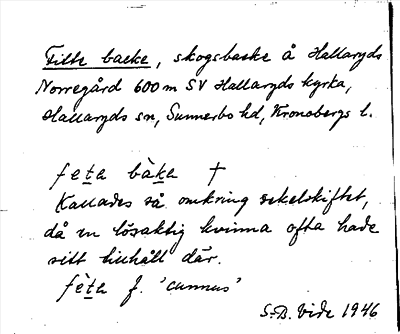 Fitte backe, skogsbacke å Hallaryds
Norregård 600 m SV Hallaryds kyrka,
Hallaryds sn, Sunnerbo hd, Kronobergs l.
feta bàka †
Kallades så omkring sekelskiftet,
då en lösaktig kvinna ofta hade
sitt tillhåll där.
fèta f. 'cunnus'
S.-B. Vide 1946